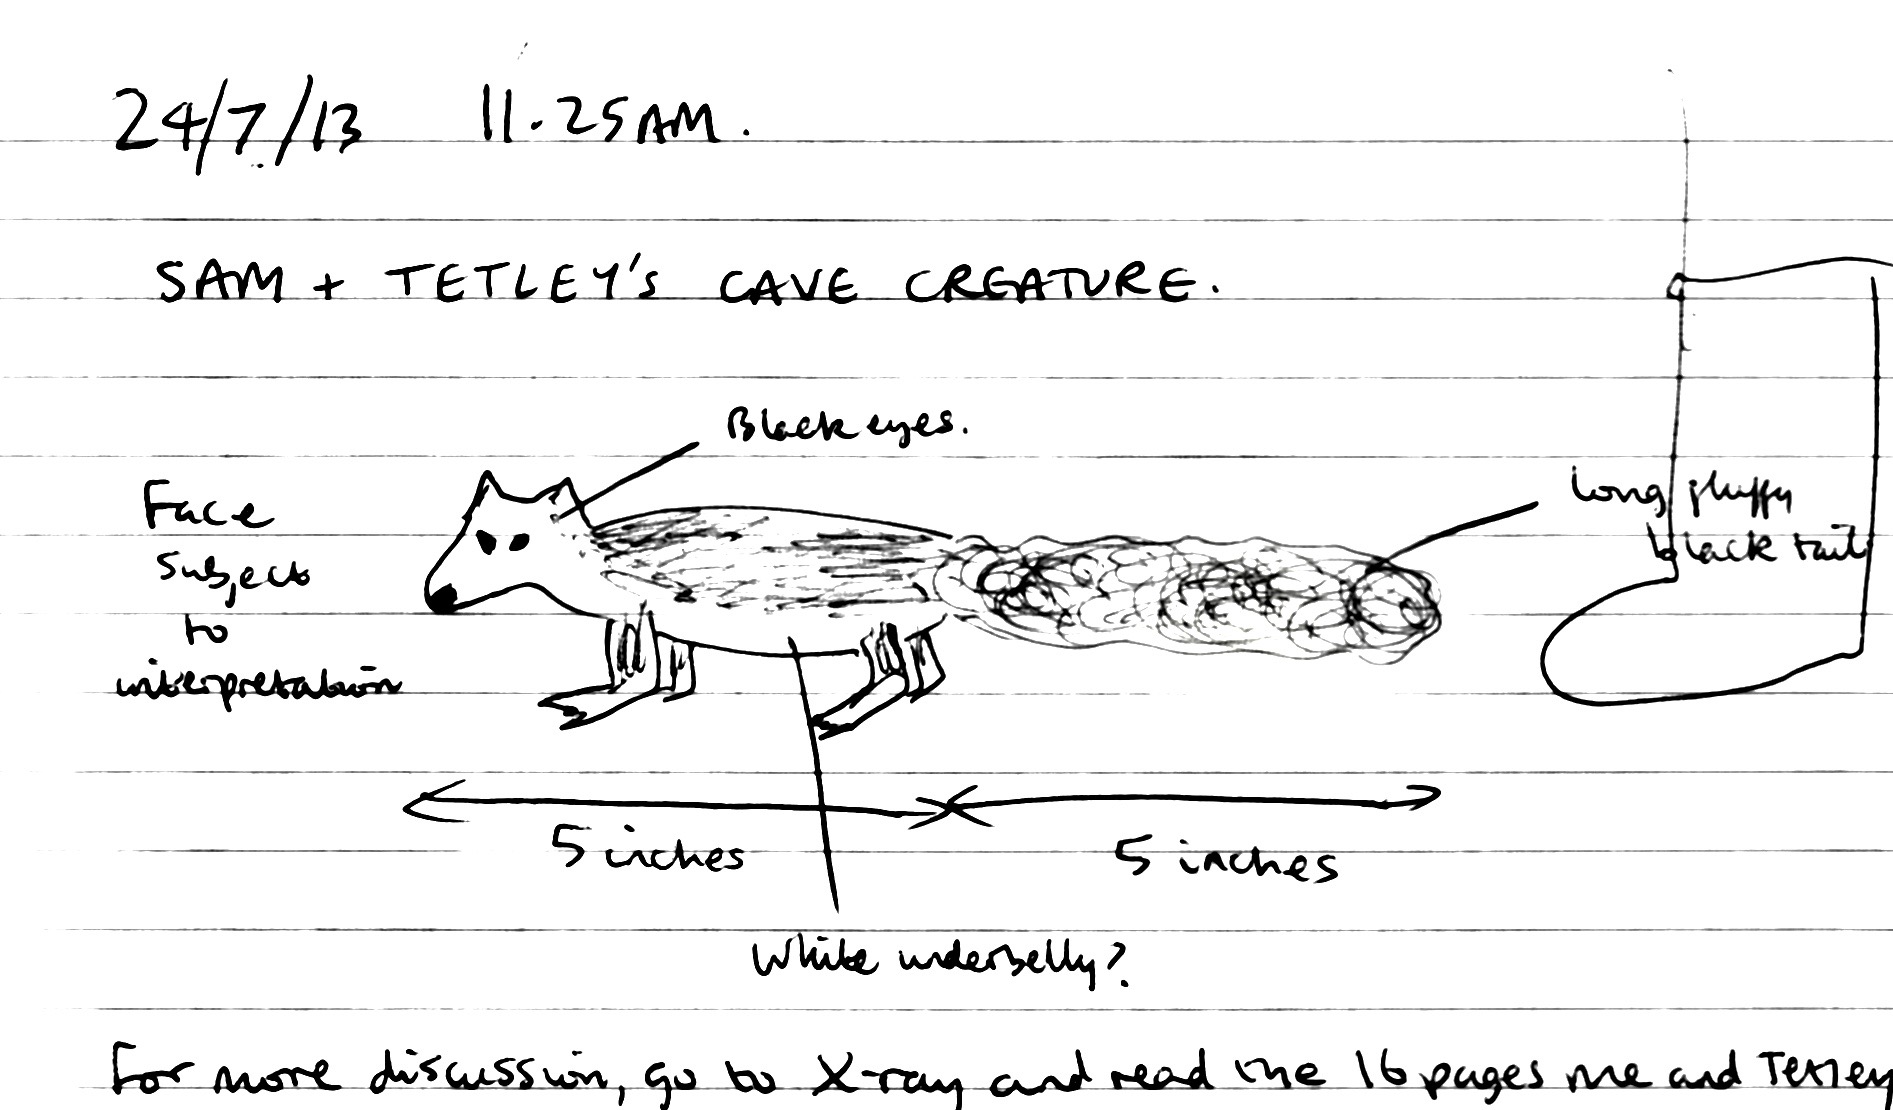 24/7/13 11.25AM.
SAM + TETLEY'S CAVE CREATURE.
Black eyes.
Face
subject
to
interpretation
long fluffy
black tail
5 inches
5 inches
White underbelly?
For more discussion, go to X-ray and read the 16 pages me and Tetley